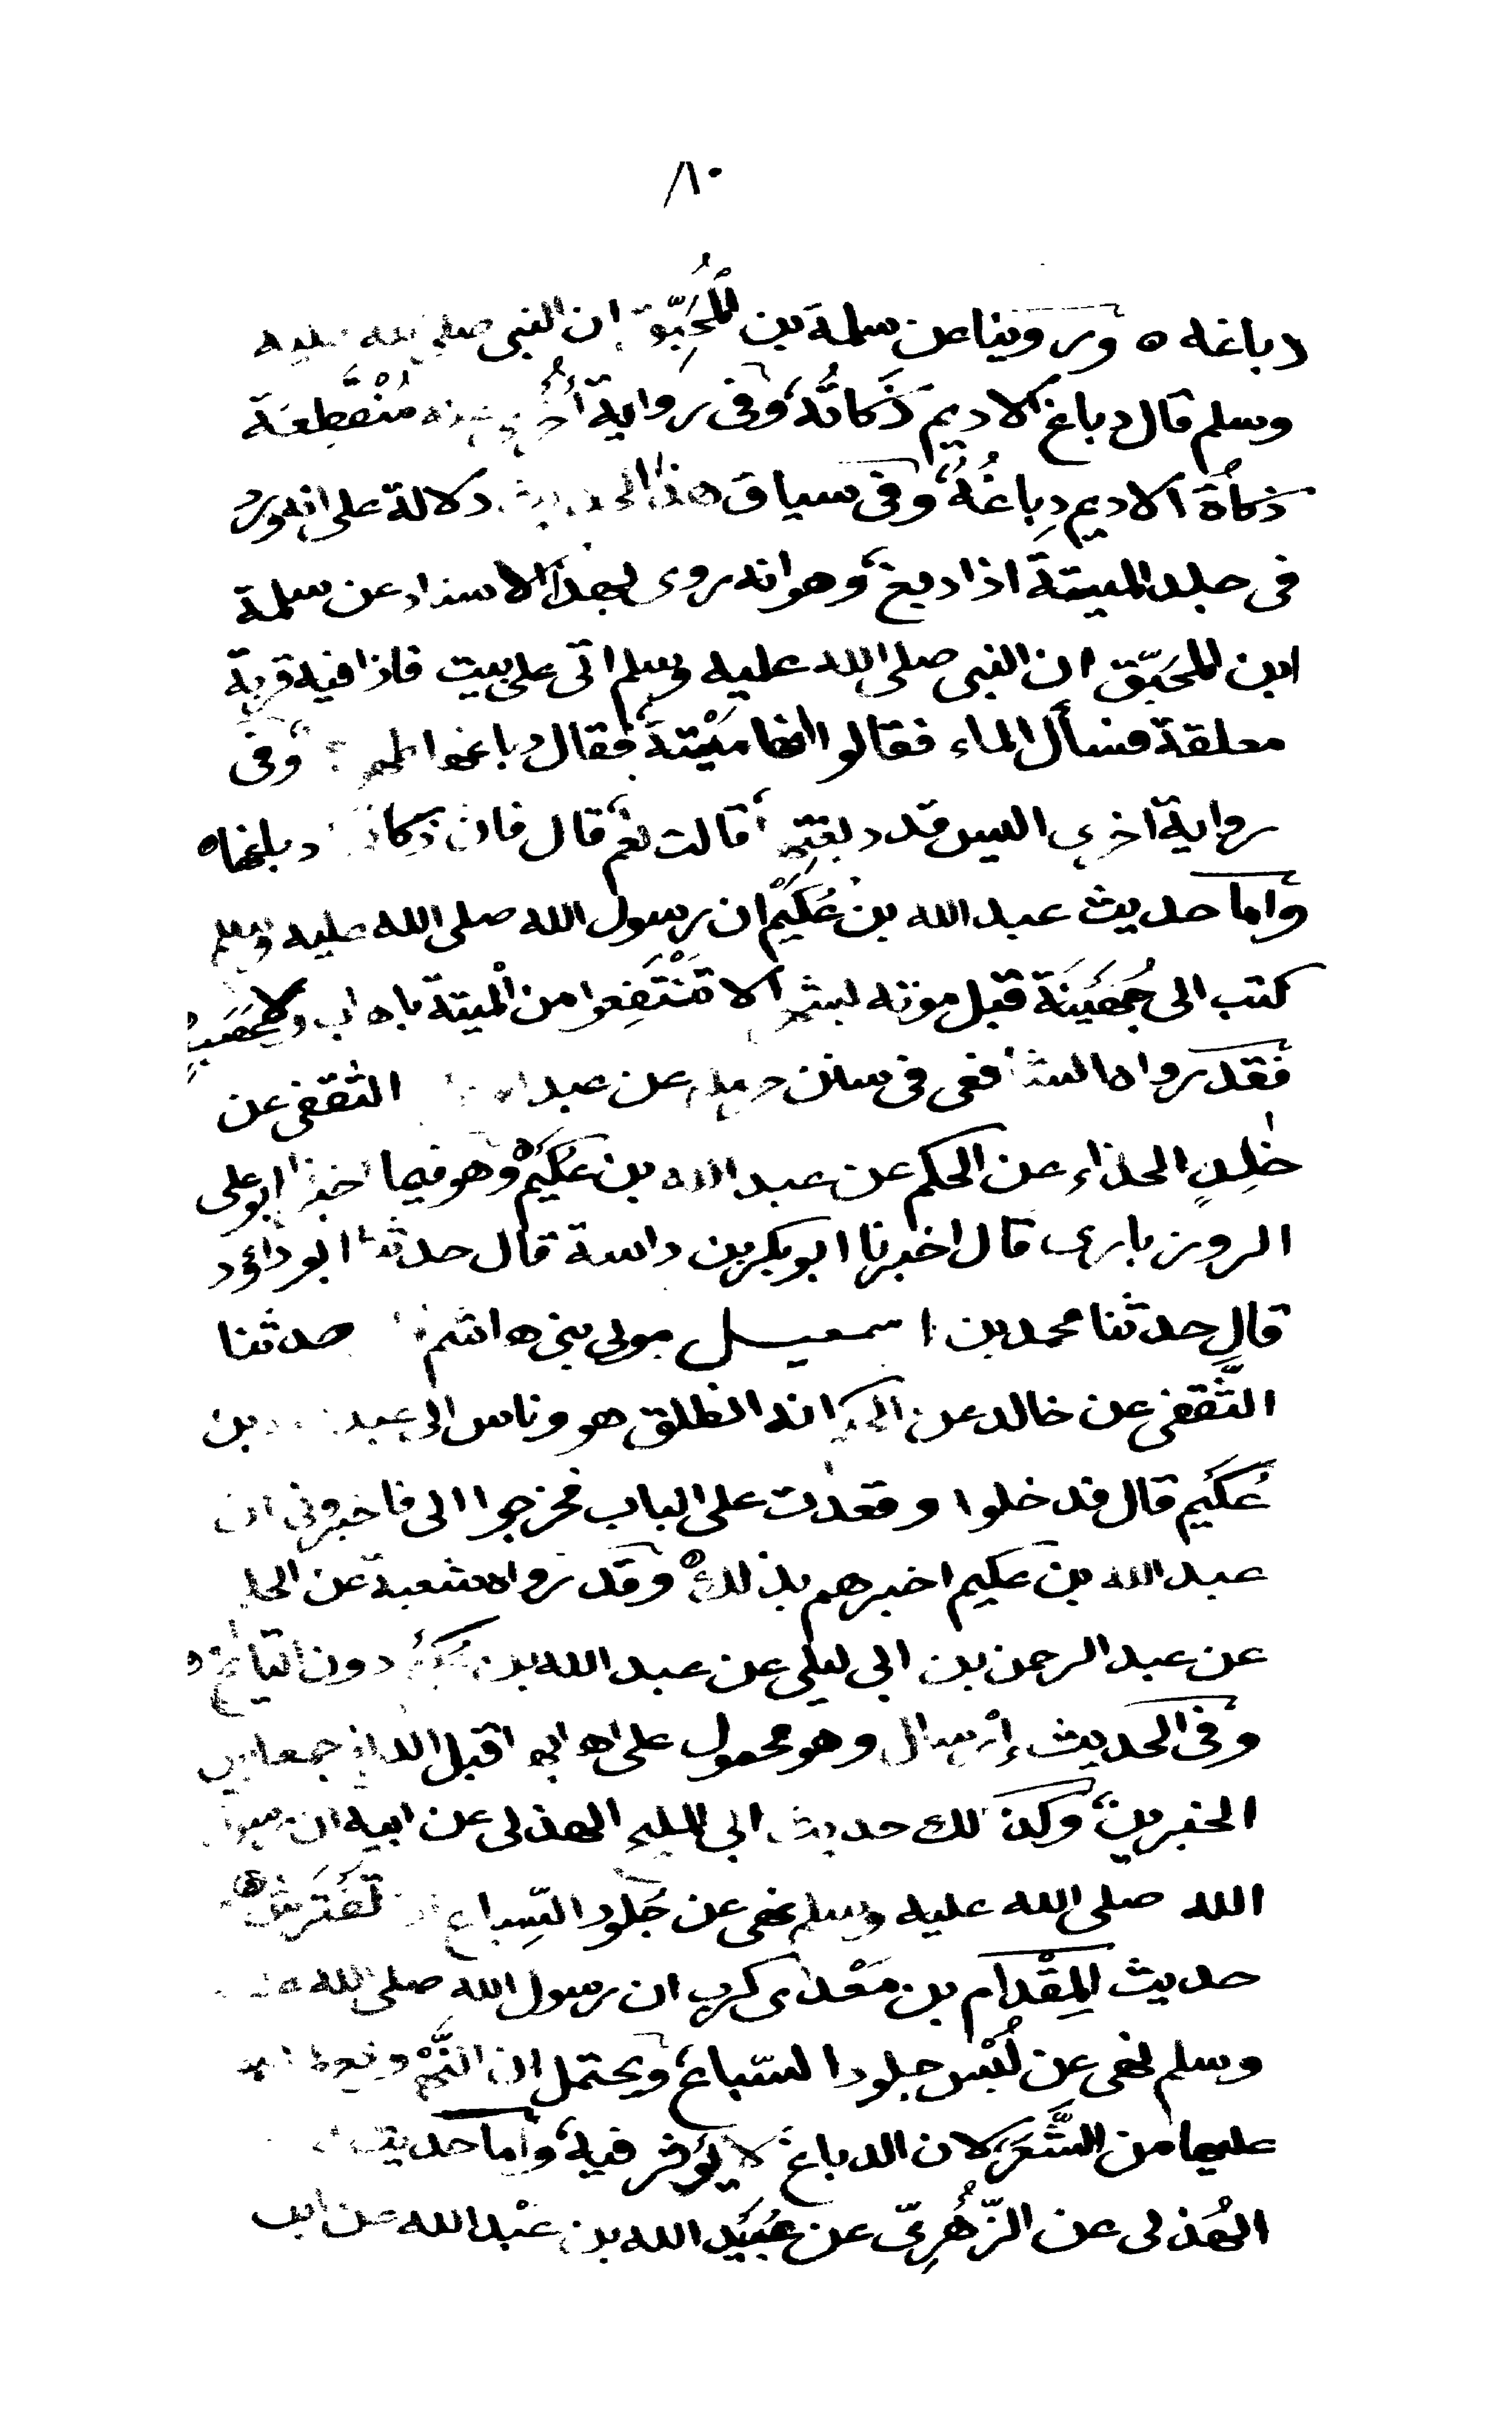 ٨٠
دباغه ٥ وروينا عن سلمة بن المُحَبِّق ان النبي صلى الله عليه
وسلم قال دباغ الاديم ذَكاتُه، وفى رواية أُخرى مُنْقَطِعَة
ذكاة الاديم دِباغُهُ، وفى سياق هذا الحديث دلالة على انه ورد
فى جلد الميتة اذا دبغ، وهو انه روى بهذا الاسناد عن سلمة
ابن المحَبّق ان النبى صلى الله عليه وسلم اتى على بيت فاذا فيه قربة
معلقة فسأل الماء فقالوا انها مَيْتة، فقال دباغها طهورها، وفى
رواية اخرى اليس قد دبغتِها، قالت نعم، قال فان ذكاتها دباغها ٥
واما حديث عبد الله بن عُكَيْم ان رسول الله صلى الله عليه وسلم
كتب الى جُهَيْنَة قبل موته بشهر الا تَنْتَفِعوا من الْميتة باهاب ولا عَصَبٍ
فقد رواه الشافعى فى سنن حرملة عن عبد الوهاب الثقفى عن
خٰلِدٍ الحذاء عن الحكم عن عبد الله بن عُكَيْم، وهو فيما اخبرنا ابو على
الروذبارى قال اخبرنا ابو بكر بن داسة قال حدثنا ابو داؤد
قال حدثنا محمد بن اسمعيل مولى بنى هاشم حدثنا
الثَّقفى عن خالد عن الحكم انه انطلق هو وناس الى عبد الله بن
عُكَيْم قال فدخلوا وقعدت على الباب فخرجوا الى فاخبرونى ان
عبد الله بن عكيم اخبرهم بذلك، وقد رواه شعبة عن الحكم
عن عبد الرحمن بن ابى ليلى عن عبد الله بن عُكَيْم دون التاريخ ٥
وفى الحديث إرْسال وهو محمول على اهابها قبل الدباغ جمعا بين
الخبرين، وكذلك حديث ابى المليح الهذلى عن ابيه ان رسول
الله صلى الله عليه وسلم نهى عن جُلود السِّباع ان تُفْتَرَش
حديث المِقْدام بن مَعْدى كرب ان رسول الله صلى الله عليه
وسلم نهى عن لُبْس جلود السّباع، ويحتمل ان النَّهْى وقع لما
عليها من الشَّعَر، لان الدباغ لا يُؤثر فيه، واما حديث
الهُذلى عن الزُّهْرِىّ عن عُبَيْد الله بن عَبْد الله عن ابن